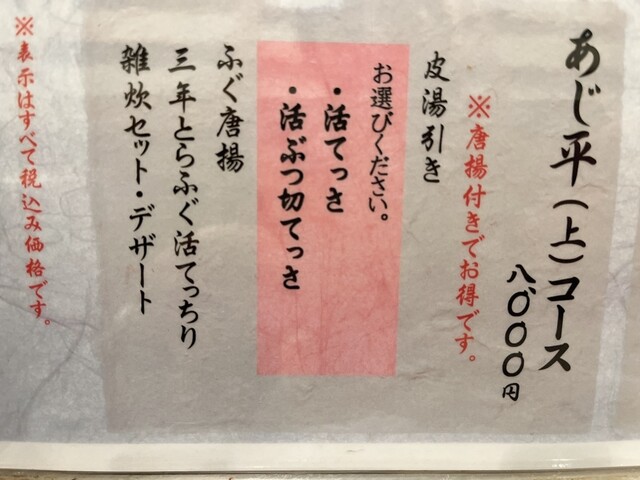 あじ平（上）コース
八、〇〇〇円
※唐揚付きでお得です。
皮湯引き
お選びください。
・活てっさ
・活ぶつ切てっさ
ふぐ唐揚
三年とらふぐ活てっちり
雑炊セット・デザート
※表示はすべて税込み価格です。